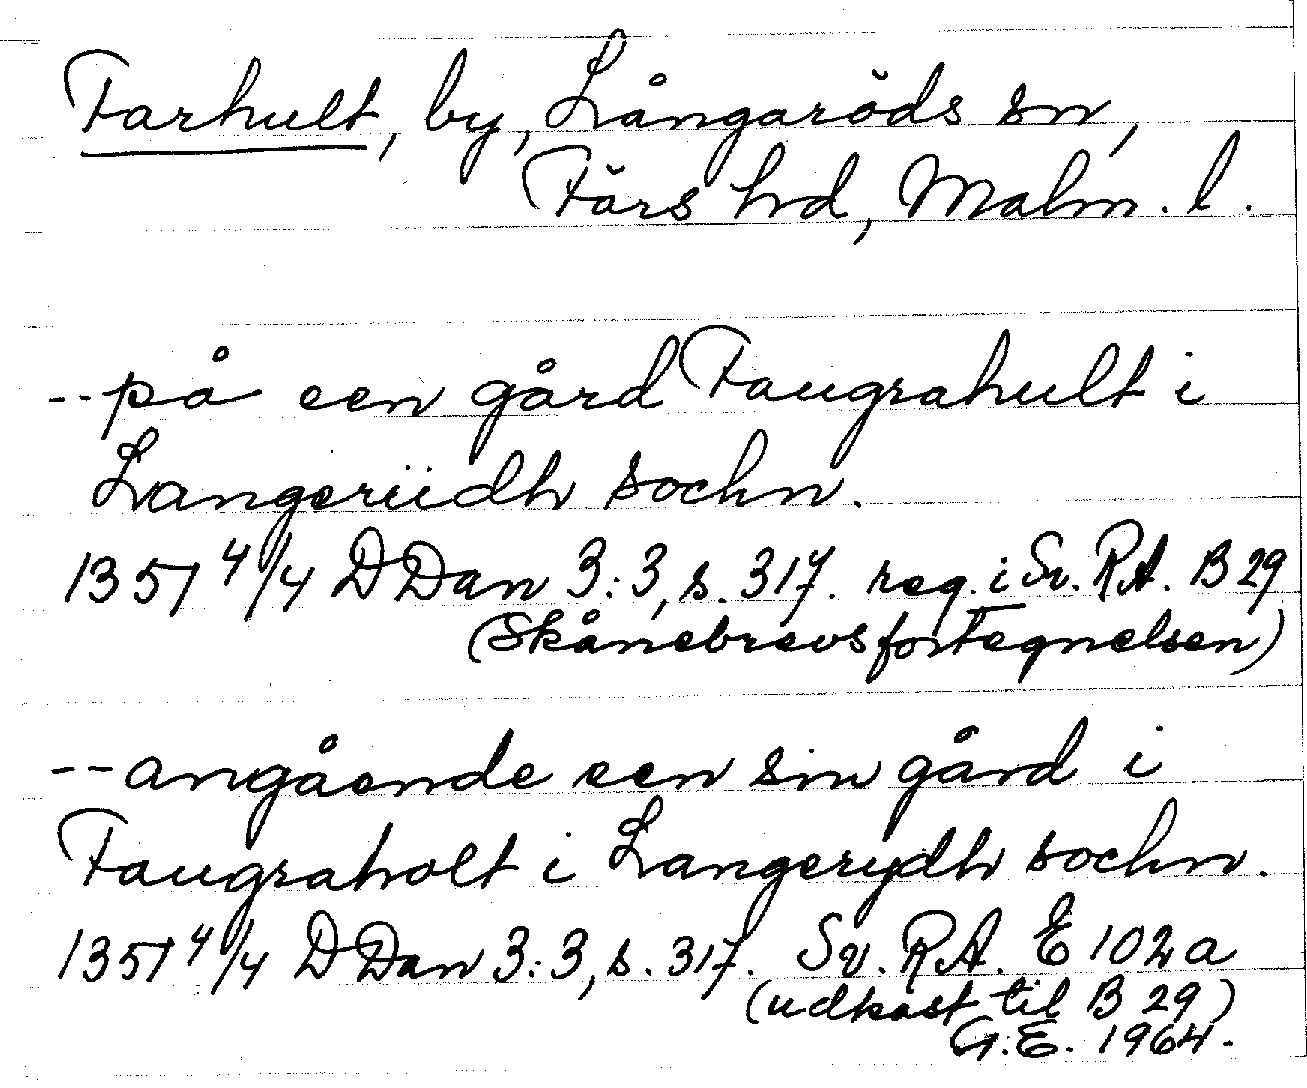 Farhult, by, Långaröds sn,
Färs hd, Malm. l.
--på een gård Faugrahult i
Langerüdh sochn.
1351 4/4 DDan 3:3, s. 317. reg. i Sv. RA. B 29
(Skånebrevsfortegnelsen)
--angående een sin gård i
Faugraholt i Langerydh sochn.
1351 4/4 DDan 3:3, s. 317. Sv. RA. E 102a
(udkast til B 29)
G.E. 1964.